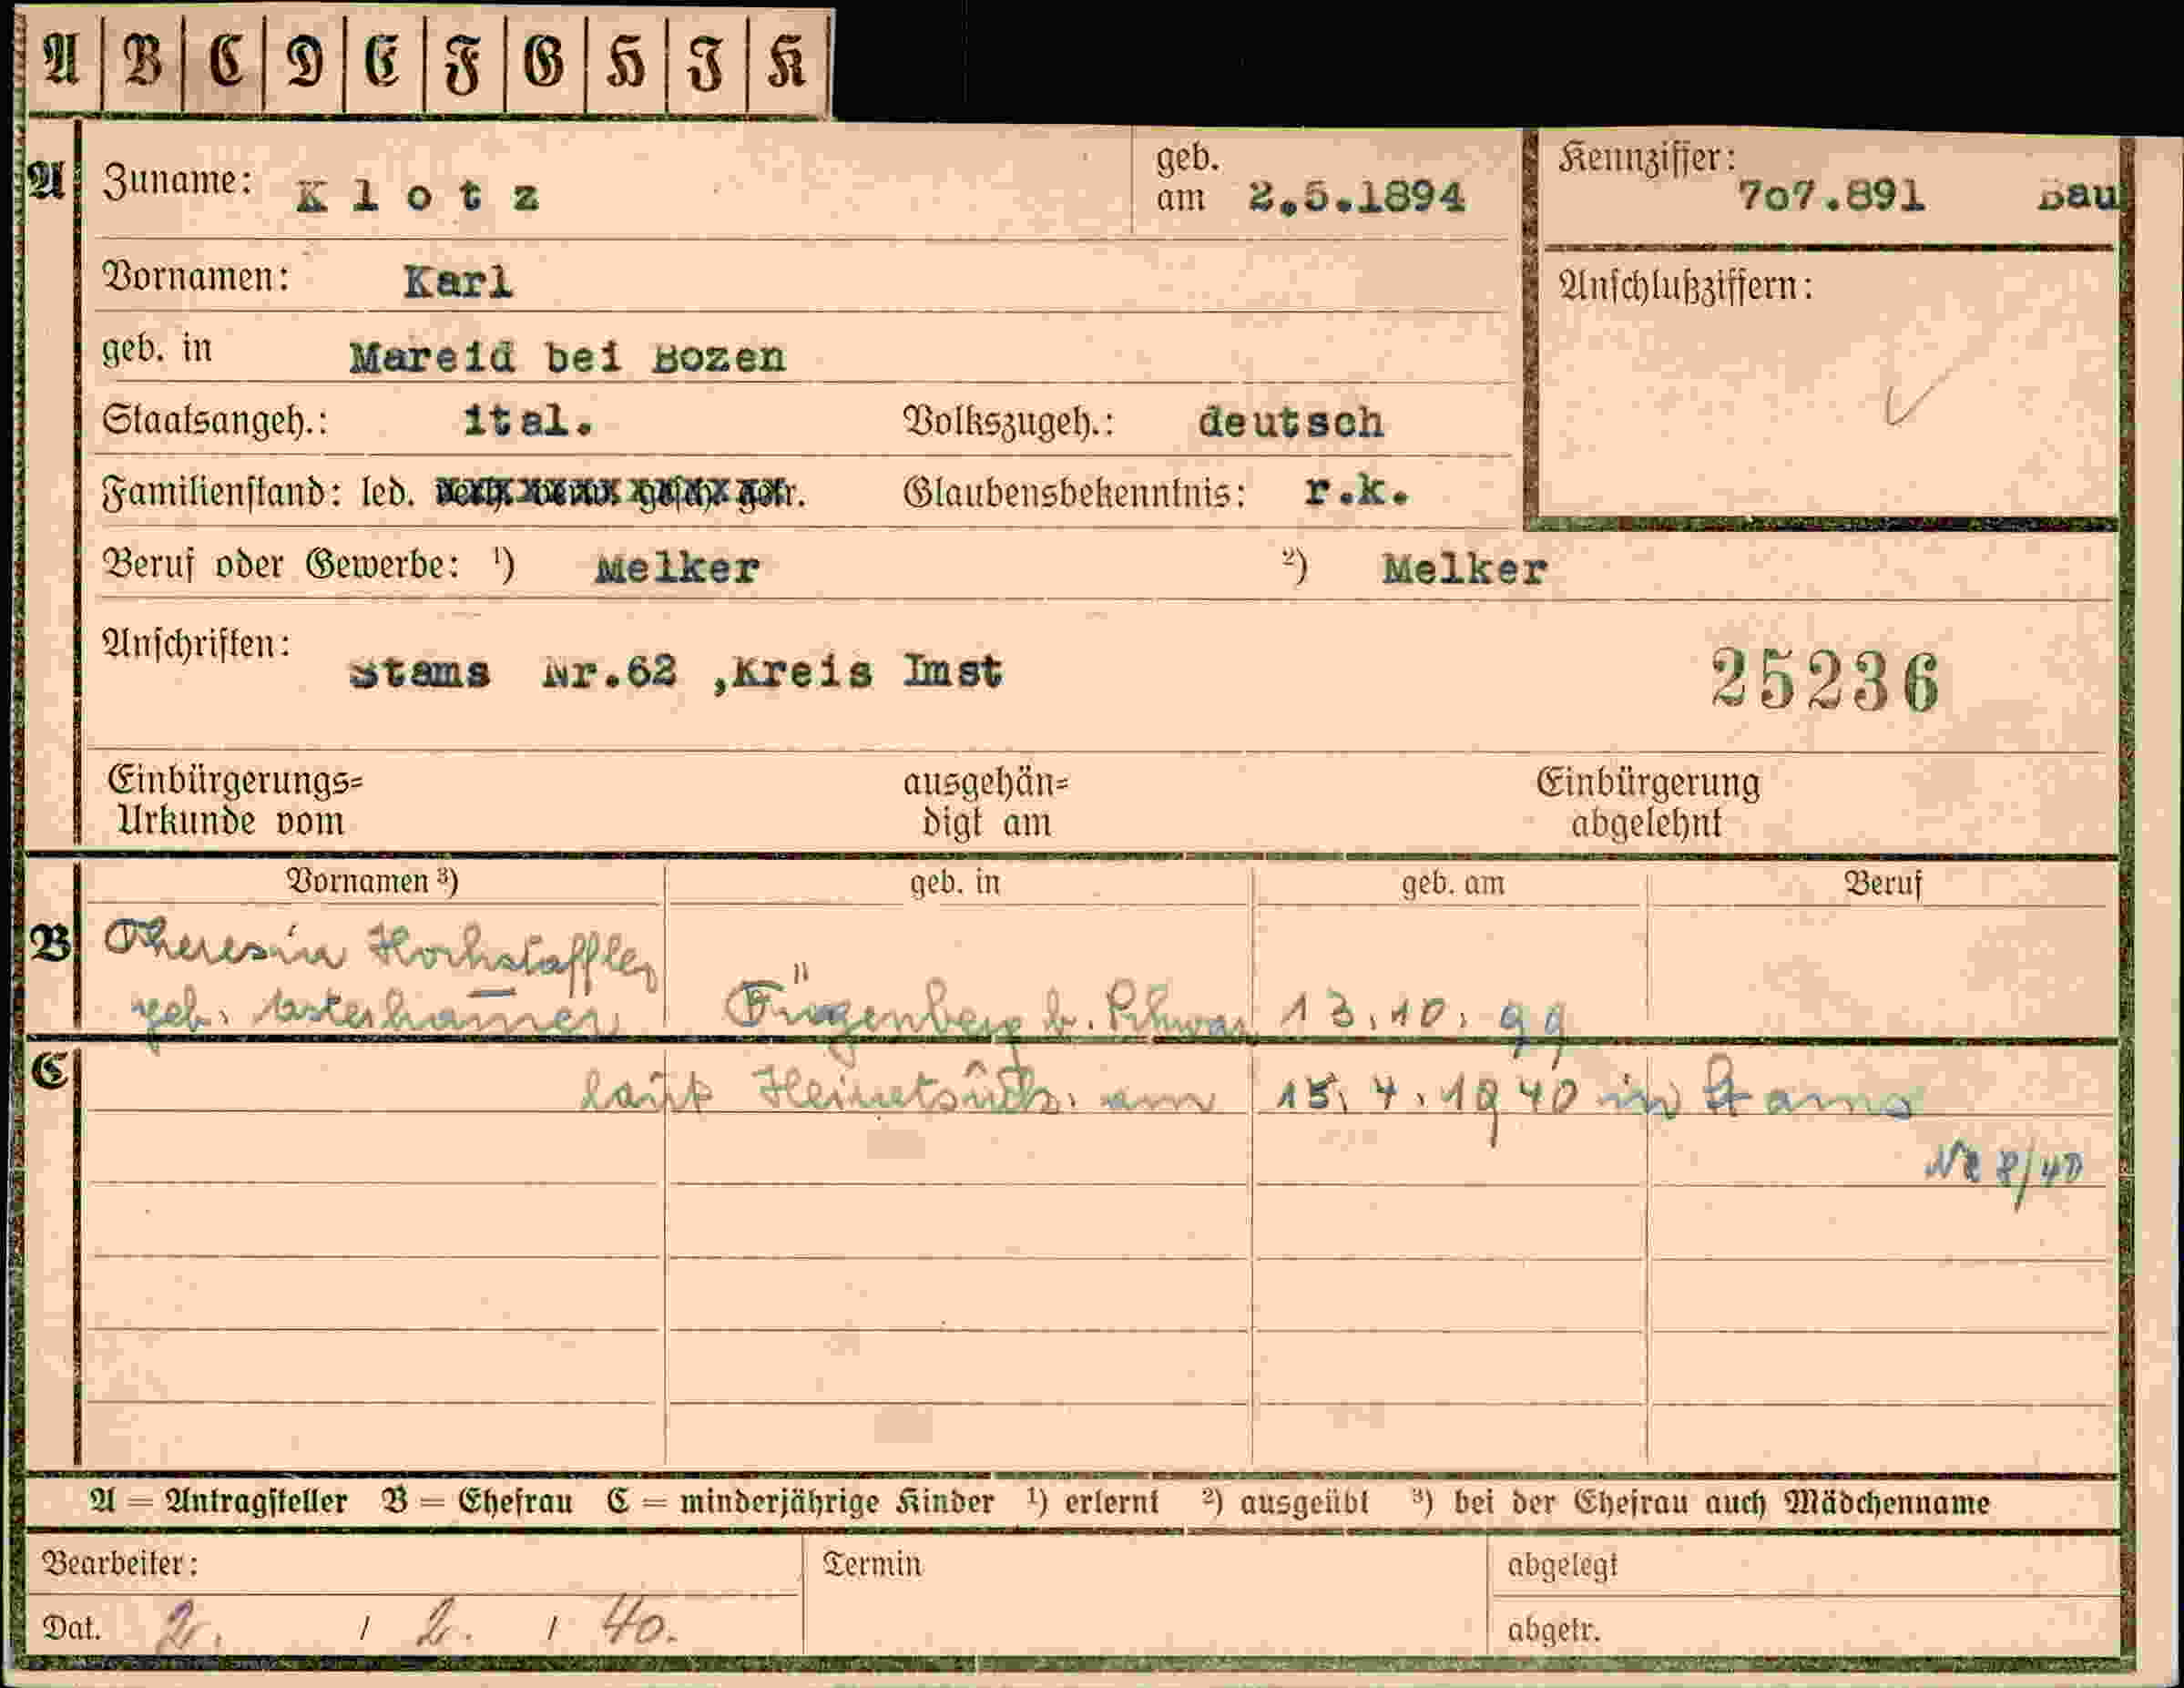 A B C D E F G H I K
A Zuname: Klotz geb. am 2.5.1894 Kennziffer: 707.891 Bau
Vornamen: Karl Anschlußziffern:
geb. in Mareid bei Bozen
Staatsangeh.: ital. Volkszugeh.: deutsch
Familienstand: led. verh. verw. gesch. getr. Glaubensbekenntnis: r.k.
Beruf oder Gewerbe: ¹) Melker ²) Melker
Anschriften: Stams Nr.62 ,Kreis Imst 25236
Einbürgerungs= ausgehän= Einbürgerung
Urkunde vom digt am abgelehnt
Vornamen ³) geb. in geb. am Beruf
B Theresia Hochstaffler
geb. Fügenberg b. Schwaz 13.10.99
C laut am 15.4.1940 in Stams
Nr 8/40
A = Antragsteller B = Ehefrau C = minderjährige Kinder ¹) erlernt ²) ausgeübt ³) bei der Ehefrau auch Mädchenname
Bearbeiter: Termin abgelegt
Dat. 2. / 2. / 40. abgetr.